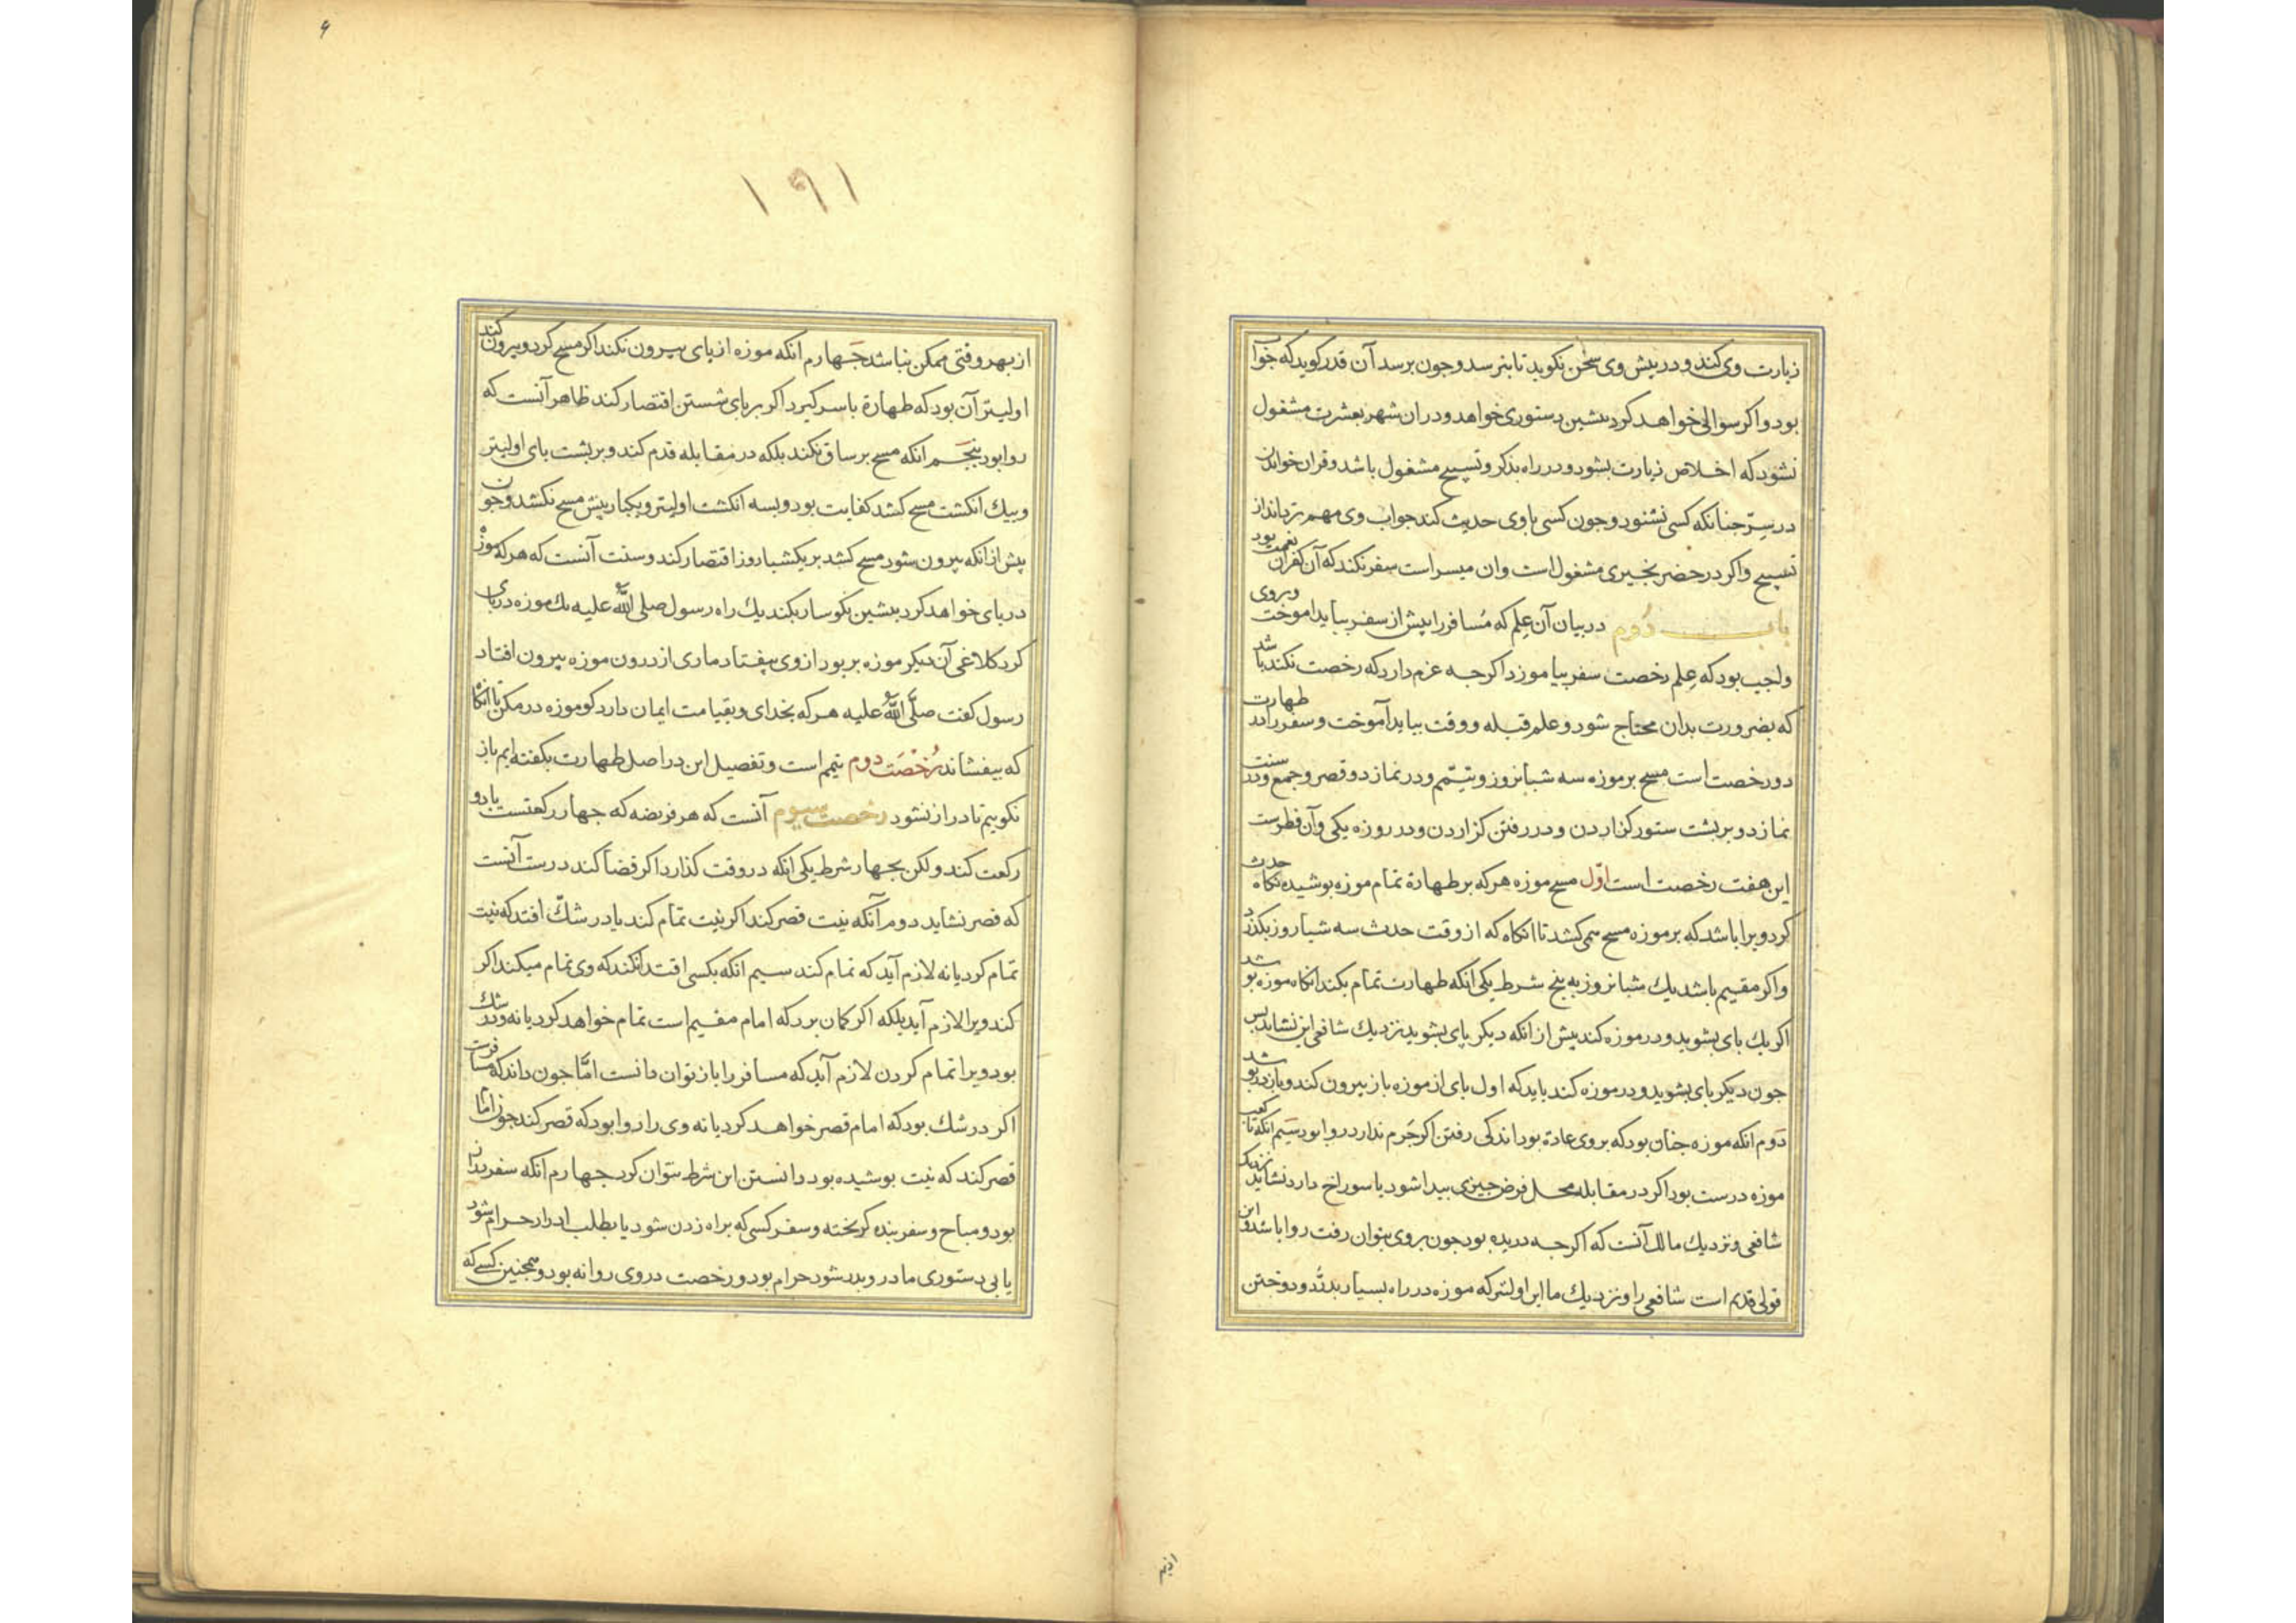 زیارت وی کند و در پیش وی سخن نکوید تا بنرسد و جون برسد آن قدر کوید که جواب
بود و اکر سوالی خواهد کرد بیشین دستوری خواهد و در ان شهر بعشرت مشغول
نشود که اخلاص زیارت بشود و در راه بذکر و تسبیح مشغول باشد و قران خواندن
در سِرّ جنانکه کسی نشنود و جون کسی با وی حدیث کند جواب وی مهم تر باند از
تسبیح و اکر در حضر بخیری مشغول است وان میسر است سفر نکند که آن کفران نعمت بود
باب دُوم در بیان آن عِلم که مُسافر را بیش از سفر بباید اموخت و بر وی
واجب بود که عِلم رخصت سفر بیاموزد اکرجه عزم دارد که رخصت نکند باشد
که بضرورت بدان محتاج شود و علم قبله و وقت بباید آموخت و سفر را در طهارت
دو رخصت است مسح بر موزه سه شبانروز و تیمّم و در نماز دو قصر و جمع و در سنت
نماز دو بر بشت ستور کزاردن و در رفتن کزاردن و در روزه یکی وآن فطرست
این هفت رخصت است اوّل مسح موزه هرکه بر طهارة تمام موزه بوشیده نکاه حدث
کرد ویرا باشد که بر موزه مسح می کشد تا انکاه که از وقت حدث سه شبار وز بکذرد
واکر مقیم باشد یك شبانروز به بنج شرط یکی انکه طهارت تمام بکند انکاه موزه بوشد
اکر یك بای بشوید و در موزه کند بیش از انکه دیکر پای بشوید نزدیك شافعی این نشاید بس
جون دیکر بای بشوید و در موزه کند باید که اول بای از موزه باز بیرون کند و باز در بوشد
دَوم انکه موزه جنان بود که بر وی عادة بود اندکی رفتن اکر جَرم ندارد روا بود سَیم انکه تا کعب
موزه درست بود اکر در مقابله محل فرض جیزی بیدا شود یا سوراخ دارد نشاید نزدیک
شافعی و نزدیك مالك آنست که اکر جه دریده بود جون بر وی بتوان رفت روا باشد و این
قولی قدیم است شافعی را و نزدیك ما این اولیتر که موزه در راه بسیار بدرّد و دوختن
۱۹۱
از بهر وقتی ممکن نباشد جَهارم انکه موزه از پای بیرون نکند اکر مسح کرد و بیرون کند
اولیتر آن بود که طهارة باسر کیرد اکر بر پای شستن اقتصار کند ظاهر آنست که
روا بود بَنجَم انکه مسح بر ساق نکند بلکه در مقابله قدم کند و بر بشت بای اولیتر
و بیك انکشت مسح کشد کفایت بود و بسه انکشت اولیتر و یکبار بیش مسح نکشد و جون
پیش از انکه بیرون شود مسح کشد بر یکشبا روز اقتصار کند و سنت آنست که هرکه موزه
در بای خواهد کرد بیشین نکوسار بکند یك راه رسول صلی الله علیه یك موزه در پای
کرد کلاغی آن دیکر موزه بربود از وی بیفتاد ماری از درون موزه بیرون افتاد
رسول کفت صلّی الله علیه هرکه بخدای و بقیامت ایمان دارد کو موزه در مکن تا انکاه
که بیفشاند رُخصَت دوم تیمم است و تفصیل این در اصل طهارت بکفته ایم باز
نکوییم تا دراز نشود رخصت سیوم آنست که هر فریضه که جهار رکعتست با دو
رکعت کند ولکن بجهار شرط یکی انکه در وقت کذارد اکر قضا کند درست آنست
که قصر نشاید دوم آنکه نیت قصر کند اکر نیت تمام کند یا در شكّ افتد که نیت
تمام کرد یا نه لازم آید که تمام کند سیم انکه بکسی اقتدا نکند که وی تمام میکند اکر
کند ویرا لازم آید بلکه اکر کمان برد که امام مقیم است تمام خواهد کرد یا نه و در شك
بود ویرا تمام کردن لازم آید که مسافر را باز نتوان دانست امّا جون داند که مسافرست
اکر در شك بود که امام قصر خواهد کرد یا نه وی را روا بود که قصر کند جون امام
قصر کند که نیت بوشیده بود دانستن این شرط نتوان کرد جهارم انکه سفر دراز
بود و مباح و سفر بنده کریخته و سفر کسی که براه زدن شود یا بطلب ادرار حرام شود
یا بی دستوری مادر و بدر شود حرام بود و رخصت در وی روا نه بود و همجنین کسی که